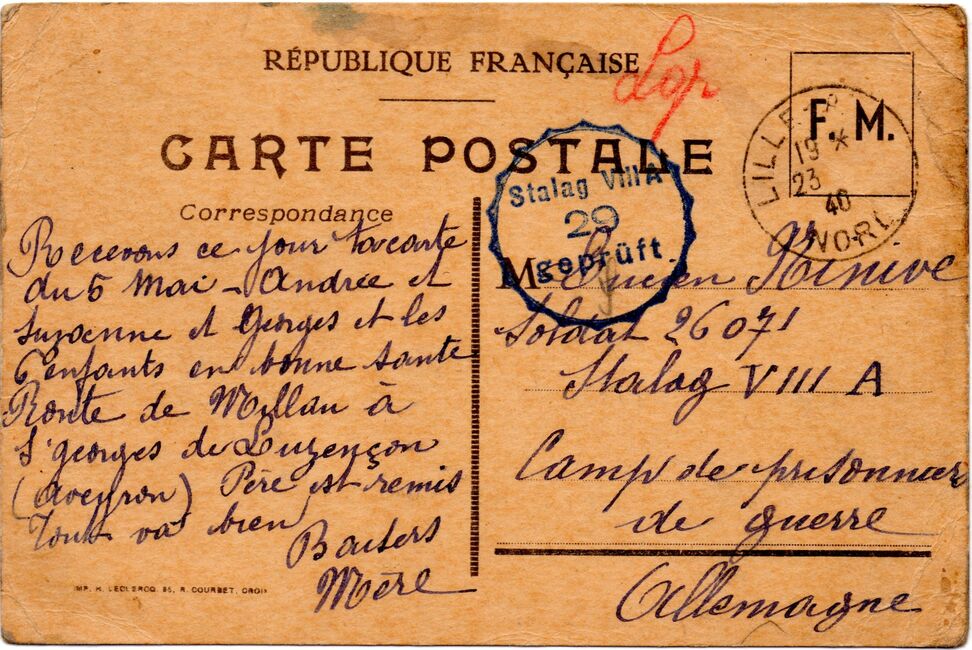 RÉPUBLIQUE FRANÇAISE
CARTE POSTALE
F. M.
LILLE
19 *
23
40
NORD
Stalag VIII A
29
geprüft
Correspondance
Recevons ce jour ta carte
du 5 Mai - Andrée et
Suzanne et Georges et les
enfants en bonne santé
Route de Millau à
St georges de Luzençon
(Aveyron) Père est remis
Tout va bien
Baisers
Mère
M Lucien
Soldat 26071
Stalag VIII A
Camp de prisonnier
de guerre
Allemagne
IMP. H. LECLERCQ. 85, R. COURBET, CROIX